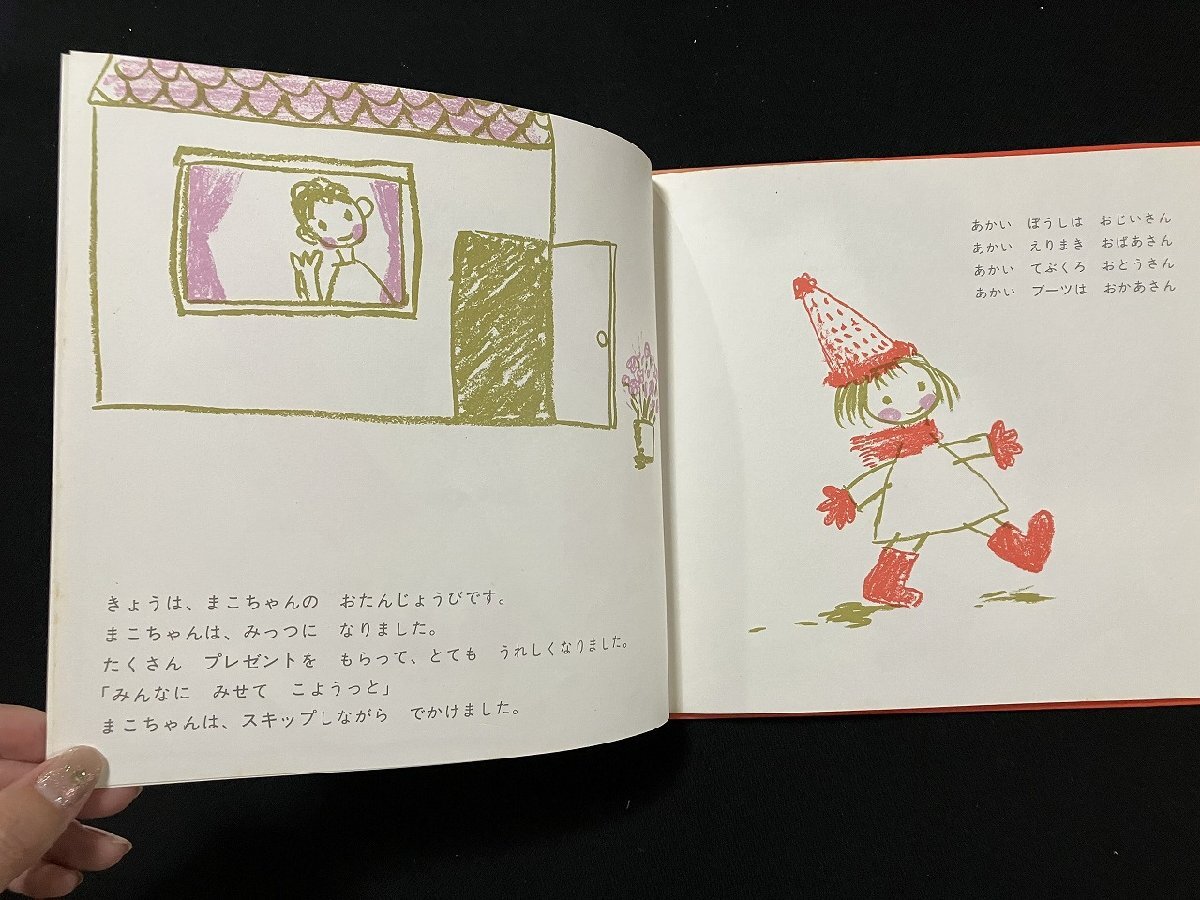 きょうは、まこちゃんの　おたんじょうびです。
まこちゃんは、みっつに　なりました。
たくさん　プレゼントを　もらって、とても　うれしくなりました。
「みんなに　みせて　こようっと」
まこちゃんは、スキップしながら　でかけました。
あかい　ぼうしは　おじいさん
あかい　えりまき　おばあさん
あかい　てぶくろ　おとうさん
あかい　ブーツは　おかあさん